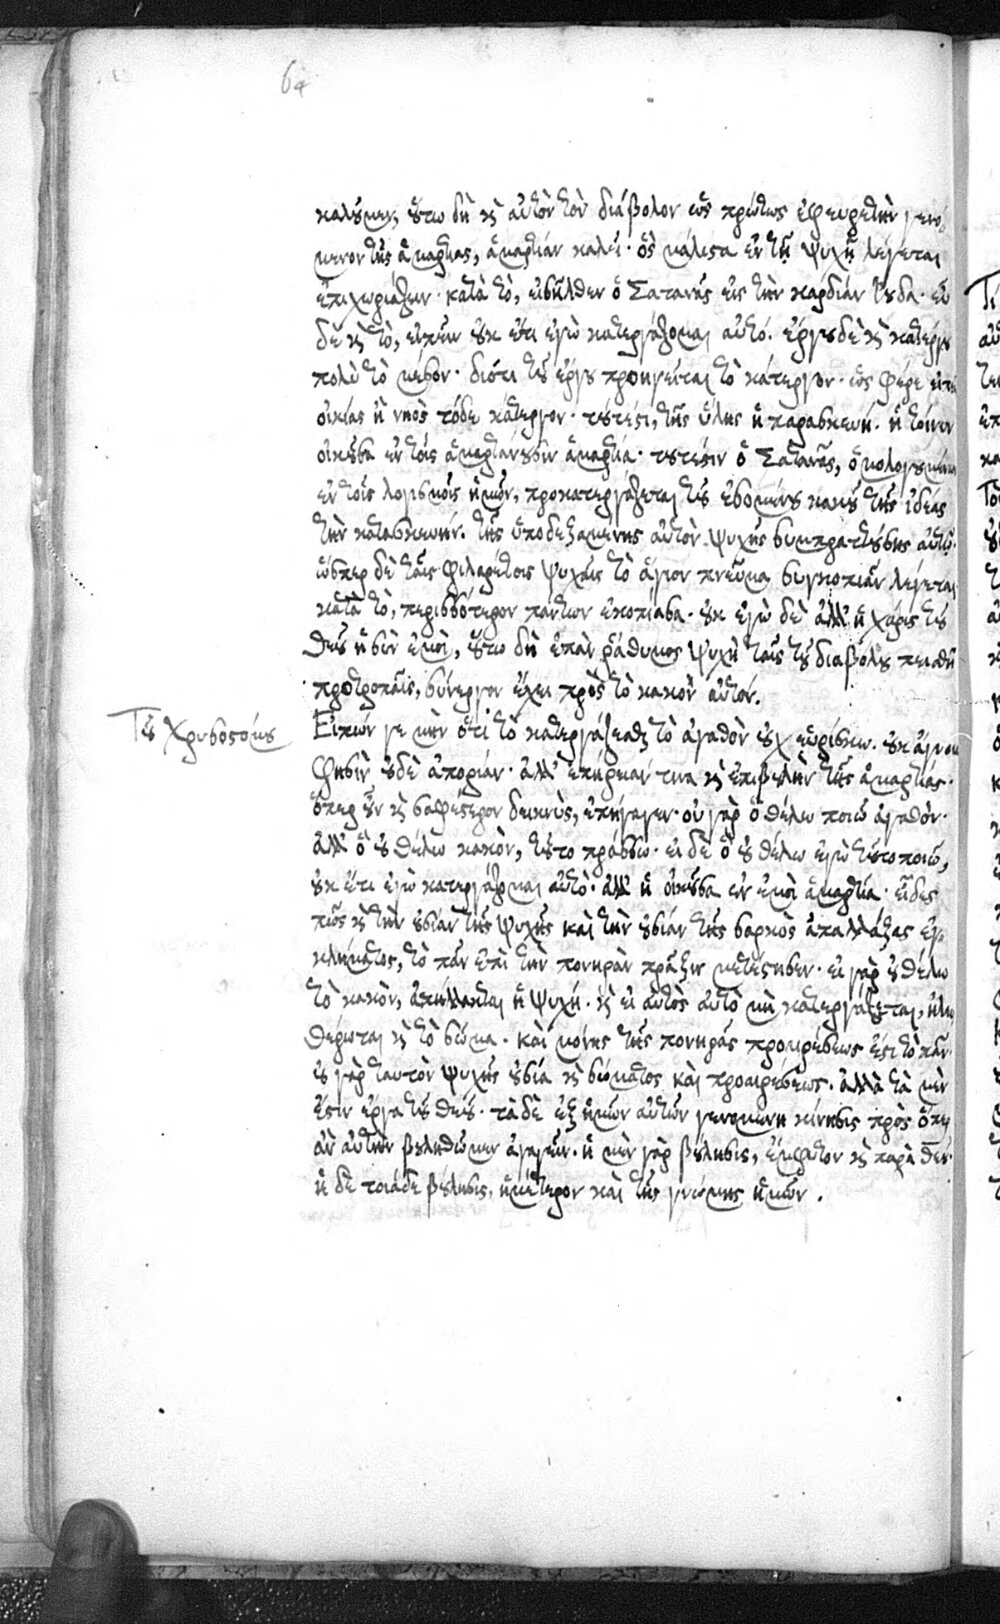 64
καλοῦμεν, οὕτω δὴ καὶ αὐτὸν τὸν διάβολον ὡς πρώτως ἐφευρετὴν γενό-
μενον τῆς ἁμαρτίας, ἁμαρτίαν καλεῖ· ὃς μάλιστα ἐν τῇ ψυχῇ λέγεται
ἐπιχωριάζειν· κατὰ τὸ, εἰσῆλθεν ὁ Σατανᾶς εἰς τὴν καρδίαν Ἰούδα· εὖ
δὲ καὶ τὸ, εἰπεῖν οὐκ ἔτι ἐγὼ κατεργάζομαι αὐτό. ἔργου δὲ καὶ κατέργου
πολὺ τὸ μέσον· διότι τοῦ ἔργου προηγεῖται τὸ κάτεργον· ὡς φέρε εἰπεῖν
οἰκίας ἢ νηὸς τόδε κάτεργον· τουτέστι, τῆς ὕλης ἡ παρασκευή. ἡ τοίνυν
οἰκοῦσα ἐν τοῖς ἁμαρτάνουσιν ἁμαρτία· τουτέστιν ὁ Σατανᾶς, ὁμολογουμένως
ἐν τοῖς λογισμοῖς ἡμῶν, προκατεργάζεται τοῦ ἐσομένου κακοῦ τῆς ἰδέας
τὴν κατασκευήν. τῆς ὑποδεξαμένης αὐτὸν ψυχῆς συμπραττούσης αὐτῷ·
ὥσπερ δὲ ταῖς φιλαρέτοις ψυχαῖς τὸ ἅγιον πνεῦμα συγκοπιᾶν λέγεται
κατὰ τὸ, περισσότερον πάντων ἐκοπίασα· οὐκ ἐγὼ δὲ ἀλλ' ἡ χάρις τοῦ
Θεοῦ ἡ σὺν ἐμοὶ, οὕτω δὴ ἐπὰν ῥάθυμος ψυχὴ ταῖς τοῦ διαβόλου πεισθῇ
προτροπαῖς, σύνεργον ἔχει πρὸς τὸ κακὸν αὐτόν.
Τοῦ Χρυσοστόμου
Εἰπών γε μὴν ὅτι τὸ κατεργάζεσθαι τὸ ἀγαθὸν οὐχ εὑρίσκω. οὐκ ἄγνοιαν
φησὶν οὐδὲ ἀπορίαν· ἀλλ' ἐπήρειάν τινα καὶ ἐπιβουλὴν τῆς ἁμαρτίας·
ὅπερ οὖν καὶ σαφέστερον δεικνὺς, ἐπήγαγεν· οὐ γὰρ ὃ θέλω ποιῶ ἀγαθόν·
ἀλλ' ὃ οὐ θέλω κακὸν, τοῦτο πράσσω· εἰ δὲ ὃ οὐ θέλω ἐγὼ τοῦτο ποιῶ,
οὐκ ἔτι ἐγὼ κατεργάζομαι αὐτὸ· ἀλλ' ἡ οἰκοῦσα ἐν ἐμοὶ ἁμαρτία· εἶδες
πῶς καὶ τὴν οὐσίαν τῆς ψυχῆς καὶ τὴν οὐσίαν τῆς σαρκὸς ἀπαλλάξας ἐγ-
κλήματος, τὸ πᾶν ἐπὶ τὴν πονηρὰν πρᾶξιν μετέστησεν· εἰ γὰρ οὐ θέλω
τὸ κακὸν, ἀπήλλακται ἡ ψυχή· καὶ εἰ αὐτὸς αὐτὸ μὴ κατεργάζεται, ἠλευ-
θέρωται καὶ τὸ σῶμα· καὶ μόνης τῆς πονηρᾶς προαιρέσεως ἐστι τὸ πᾶν·
οὐ γὰρ ταυτὸν ψυχῆς οὐσία καὶ σώματος καὶ προαιρέσεως· ἀλλὰ τὰ μὲν
ἐστιν ἔργα τοῦ Θεοῦ· τὰ δὲ ἐξ ἡμῶν αὐτῶν γενομένη κίνησις πρὸς ὅπερ
ἂν αὐτὴν βουληθῶμεν ἀγαγεῖν. ἡ μὲν γὰρ βούλησις, ἔμφυτον καὶ παρὰ Θεοῦ·
ἡ δὲ τοιάδε βούλησις, ἡμέτερον καὶ τῆς γνώμης ἡμῶν.